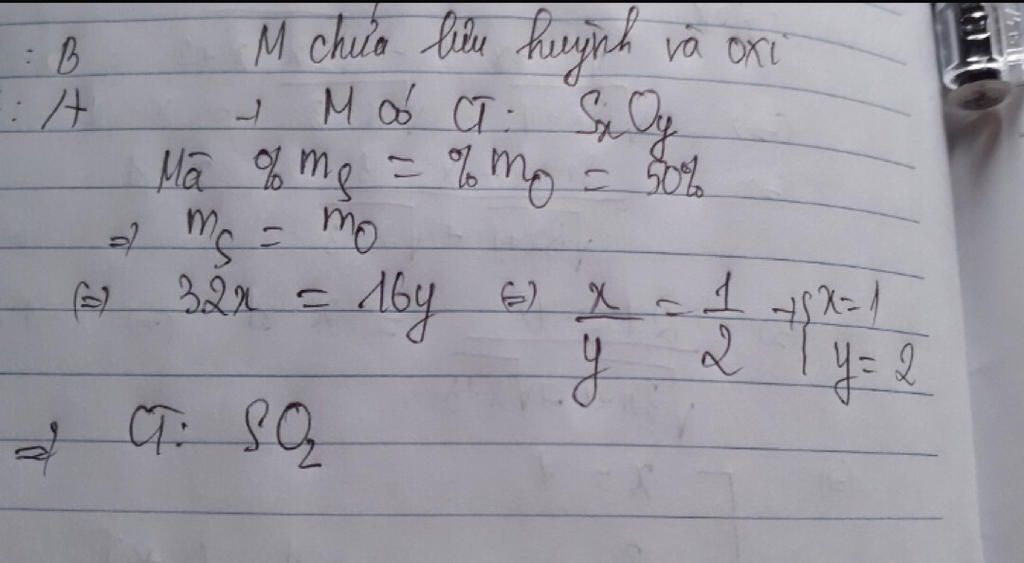 : B M chứa lưu huỳnh và oxi
: A → M có CT: SxOy
Mà %mS = %mO = 50%
=> mS = mO
(=) 32x = 16y (=) x/y = 1/2 → { x=1
y=2
=> CT: SO2